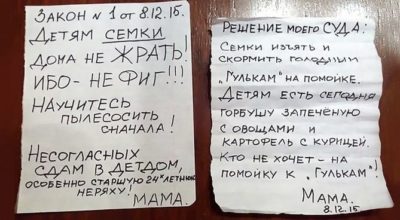 Закон № 1 от 8.12.15.
Детям семки
дома не жрать!
Ибо - не фиг!!!
Научитесь
пылесосить
сначала!
Несогласных
сдам в детдом,
особенно старшую 24ˣ летнюю
неряху!
Мама.
Решение моего суда:
Семки изъять и
скормить голодным
"Гулькам" на помойке.
Детям есть сегодня
горбушу запечёную
с овощами и
картофель с курицей.
Кто не хочет - на
помойку к "Гулькам"!
Мама.
8.12.15